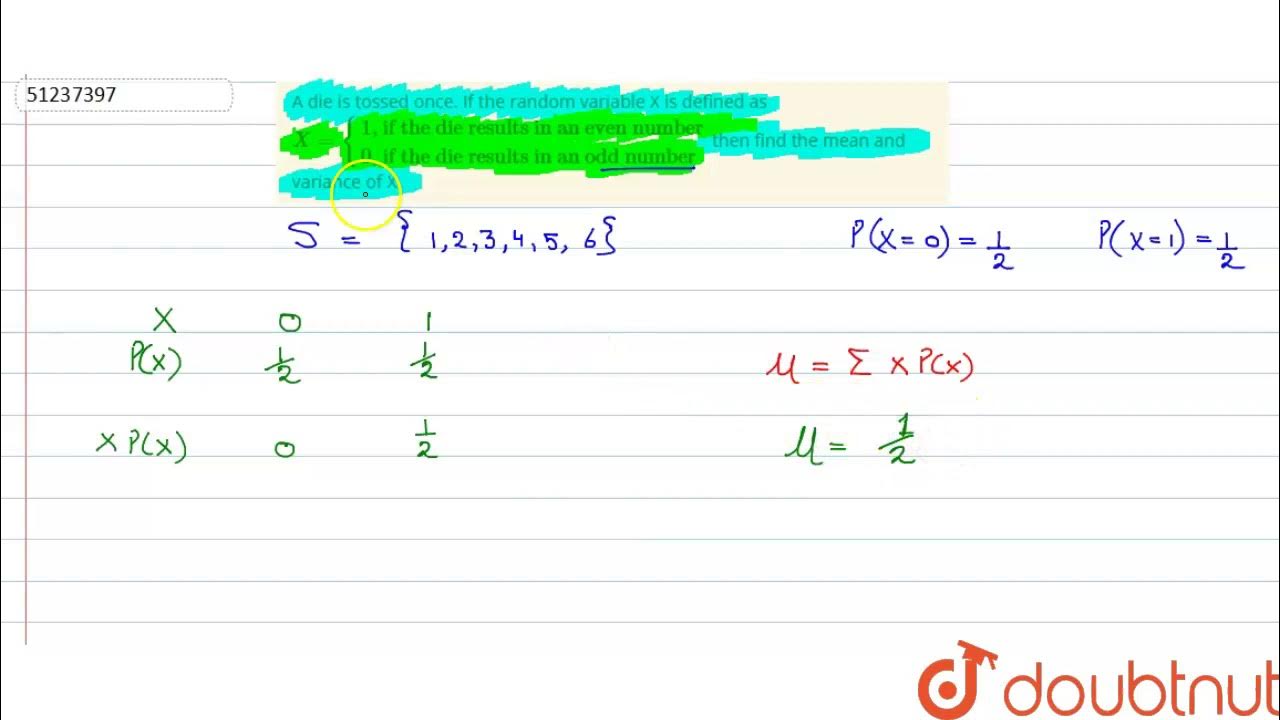 51237397
A die is tossed once. If the random variable X is defined as
X = { 1, if the die results in an even number
0, if the die results in an odd number
then find the mean and
variance of X
S = { 1,2,3,4,5, 6}
P(X=0) = 1/2
P(X=1) = 1/2
X 0 1
P(X) 1/2 1/2
μ = Σ X P(X)
X P(X) 0 1/2
μ = 1/2
doubtnut